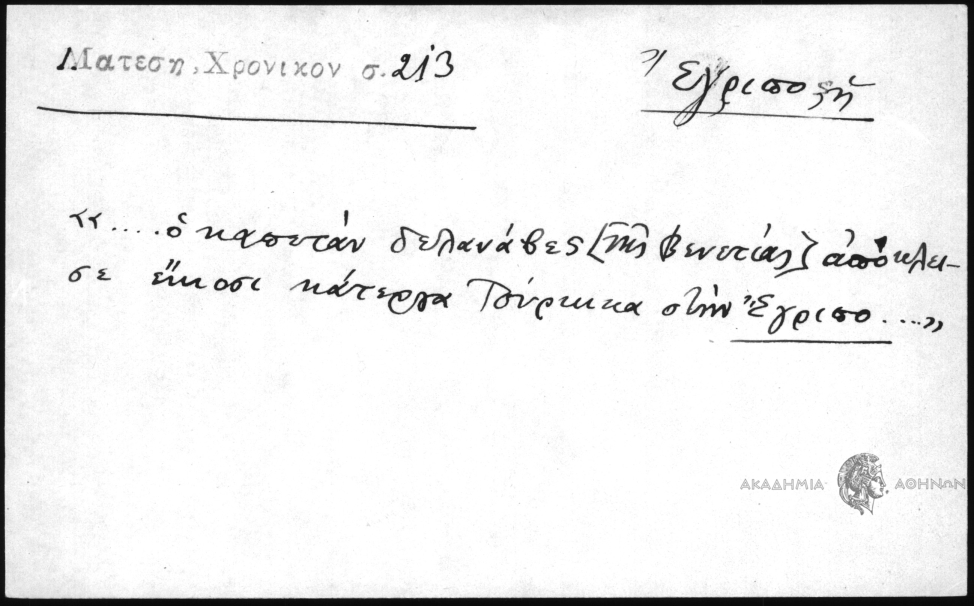 Ματεση, Χρονικον σ. 213
Ἔγριπο ἡ
«....ὁ καπετάν δελανάβες [τῆς Βενετίας] ἀπόκλει-
σε εἴκοσι κάτεργα Τούρκικα στὴν Ἔγριπο ....»
ΑΚΑΔΗΜΙΑ ΑΘΗΝΩΝ